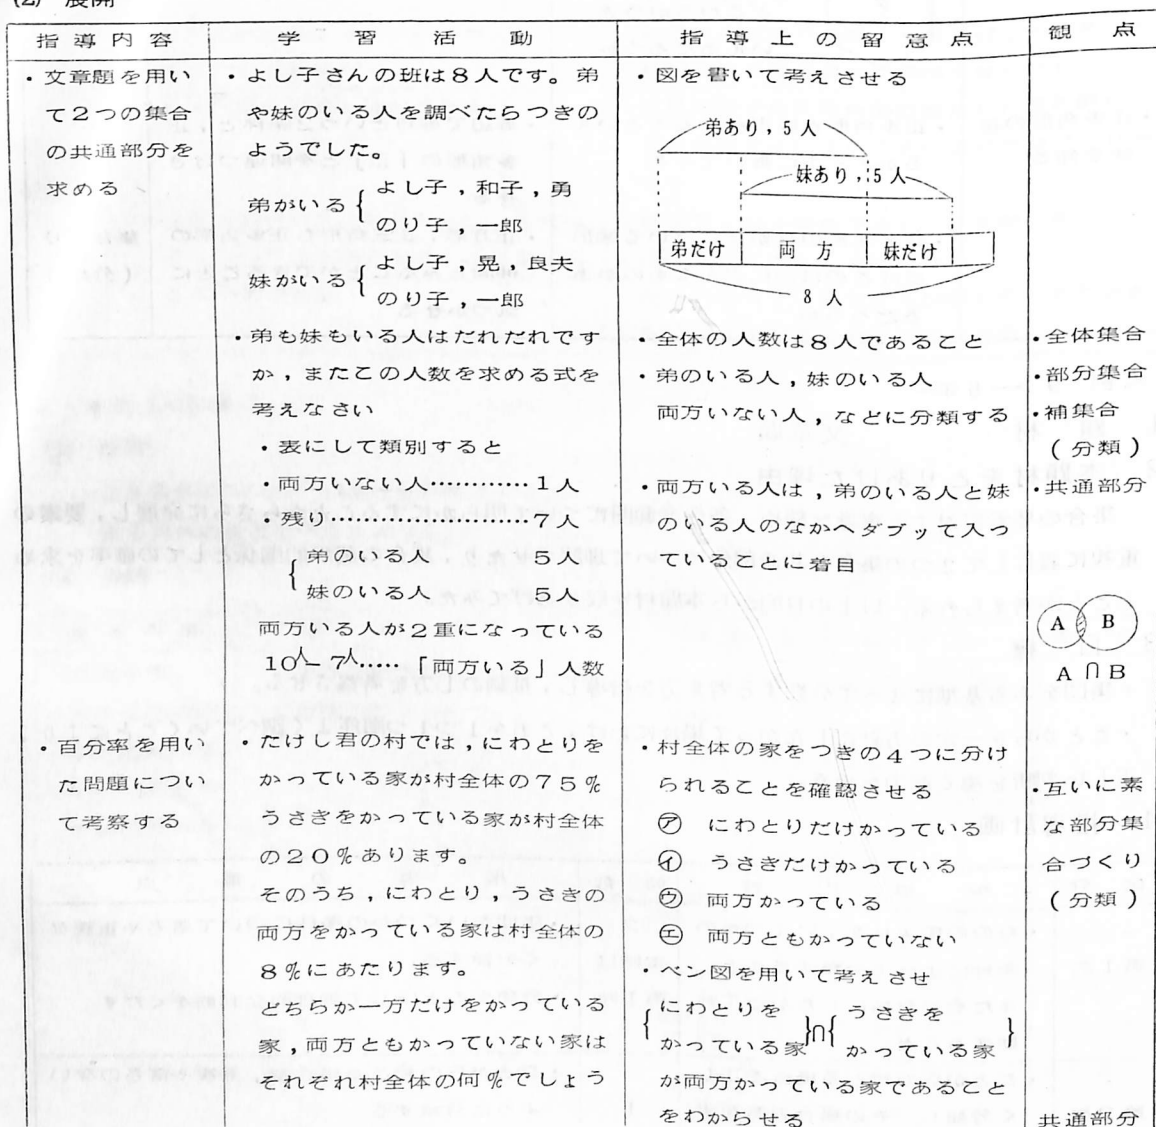 (2) 展開
指導内容
学習活動
指導上の留意点
観点
・文章題を用い
て2つの集合
の共通部分を
求める
・よし子さんの班は8人です。弟
や妹のいる人を調べたらつきの
ようでした。
弟がいる{よし子,和子,勇
のり子,一郎
妹がいる{よし子,晃,良夫
のり子,一郎
・弟も妹もいる人はだれだれです
か,またこの人数を求める式を
考えなさい
・表にして類別すると
・両方いない人…………1人
・残り……………………7人
{弟のいる人 5人
妹のいる人 5人
両方いる人が2重になっている
10人−7人……「両方いる」人数
・図を書いて考えさせる
弟あり,5人
妹あり,5人
弟だけ 両方 妹だけ
8人
・全体の人数は8人であること
・弟のいる人,妹のいる人
両方いない人,などに分類する
・両方いる人は,弟のいる人と妹
のいる人のなかへダブッて入っ
ていることに着目
・全体集合
・部分集合
・補集合
(分類)
・共通部分
A B
A∩B
・百分率を用い
た問題につい
て考察する
・たけし君の村では,にわとりを
かっている家が村全体の75%
うさぎをかっている家が村全体
の20%あります。
そのうち,にわとり,うさぎの
両方をかっている家は村全体の
8%にあたります。
どちらか一方だけをかっている
家,両方ともかっていない家は
それぞれ村全体の何%でしょう
・村全体の家をつきの4つに分け
られることを確認させる
㋐ にわとりだけかっている
㋑ うさぎだけかっている
㋒ 両方かっている
㋓ 両方ともかっていない
・ベン図を用いて考えさせ
{にわとりを
かっている家}∩{うさぎを
かっている家}
が両方かっている家であること
をわからせる
・互いに素
な部分集
合づくり
(分類)
共通部分